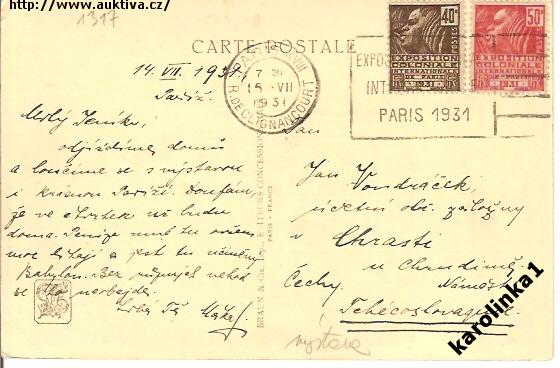 http://www.auktiva.cz/
1317
CARTE POSTALE
40c
50c
POSTES
EXPOSITION
COLONIALE
INTERNATIONALE
DE PARIS
1931
EXPOSITION
COLONIALE
INTERNATIONALE
DE PARIS
1931
PARIS XVIII
7 30
15 · VII
1931
R. DE CLIGNANCOURT
EXPOS
INT
PARIS 1931
14. VII. 1931.
Paříž.
Milý Jeníku,
odjíždíme domů
a loučíme se s výstavou
i krásnou Paříží. Doufám,
že ve čtvrtek už budu
doma. Peníze mně tu
moc lítají a jest tu
Babylon. Bez nehod
se to neobejde.
Líbá Tě
BRAUN & Cie, ÉDITEURS-CONCESSION
PARIS - FRANCE
Pan
Jan Vondráček,
účetní ob. záložny
v
Chrasti
u Chrudimě
Náměstí
Čechy
Tchécoslovaquie
výstava
karolinka1